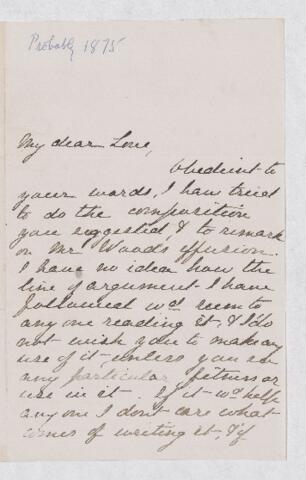 Probably 1875
My dear Love,
Obedient to
your words, I have tried
to do the composition
you suggested, & to remark
on Mr Woods effusion.
I have no idea how the
line of argument I have
followed wd seem to
any one reading it, & I do
not wish you to make any
use of it unless you see
any particular fitness or
use in it. If it wd help
any one I dont care what
comes of writing it, & if